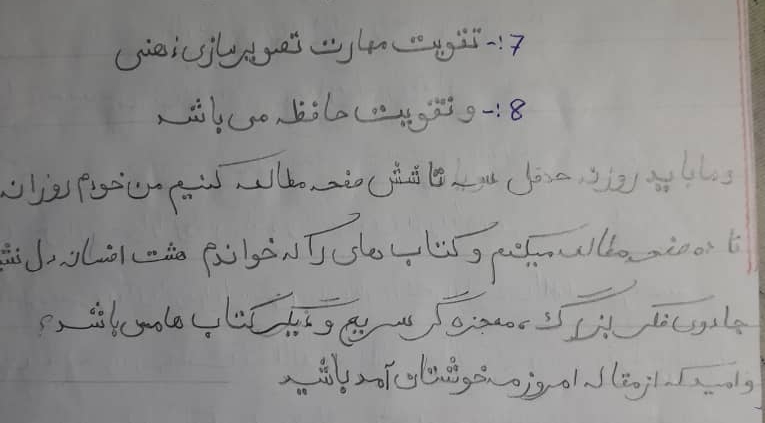 7:- تقویت مهارت تصویر سازی ذهنی
8:- و تقویت حافظه می باشد
و ما باید روزانه حداقل سه تا شش صفحه مطالعه کنیم من خودم روزانه
تا ده صفحه مطالعه میکنم و کتاب های را که خواندم هشت افسانه دل
جادوی فکر بزرگ، معجزه گر سریع و دیگر کتاب ها می باشد؟
و امید که از مقاله امروزمه خوشتان آمد باشید